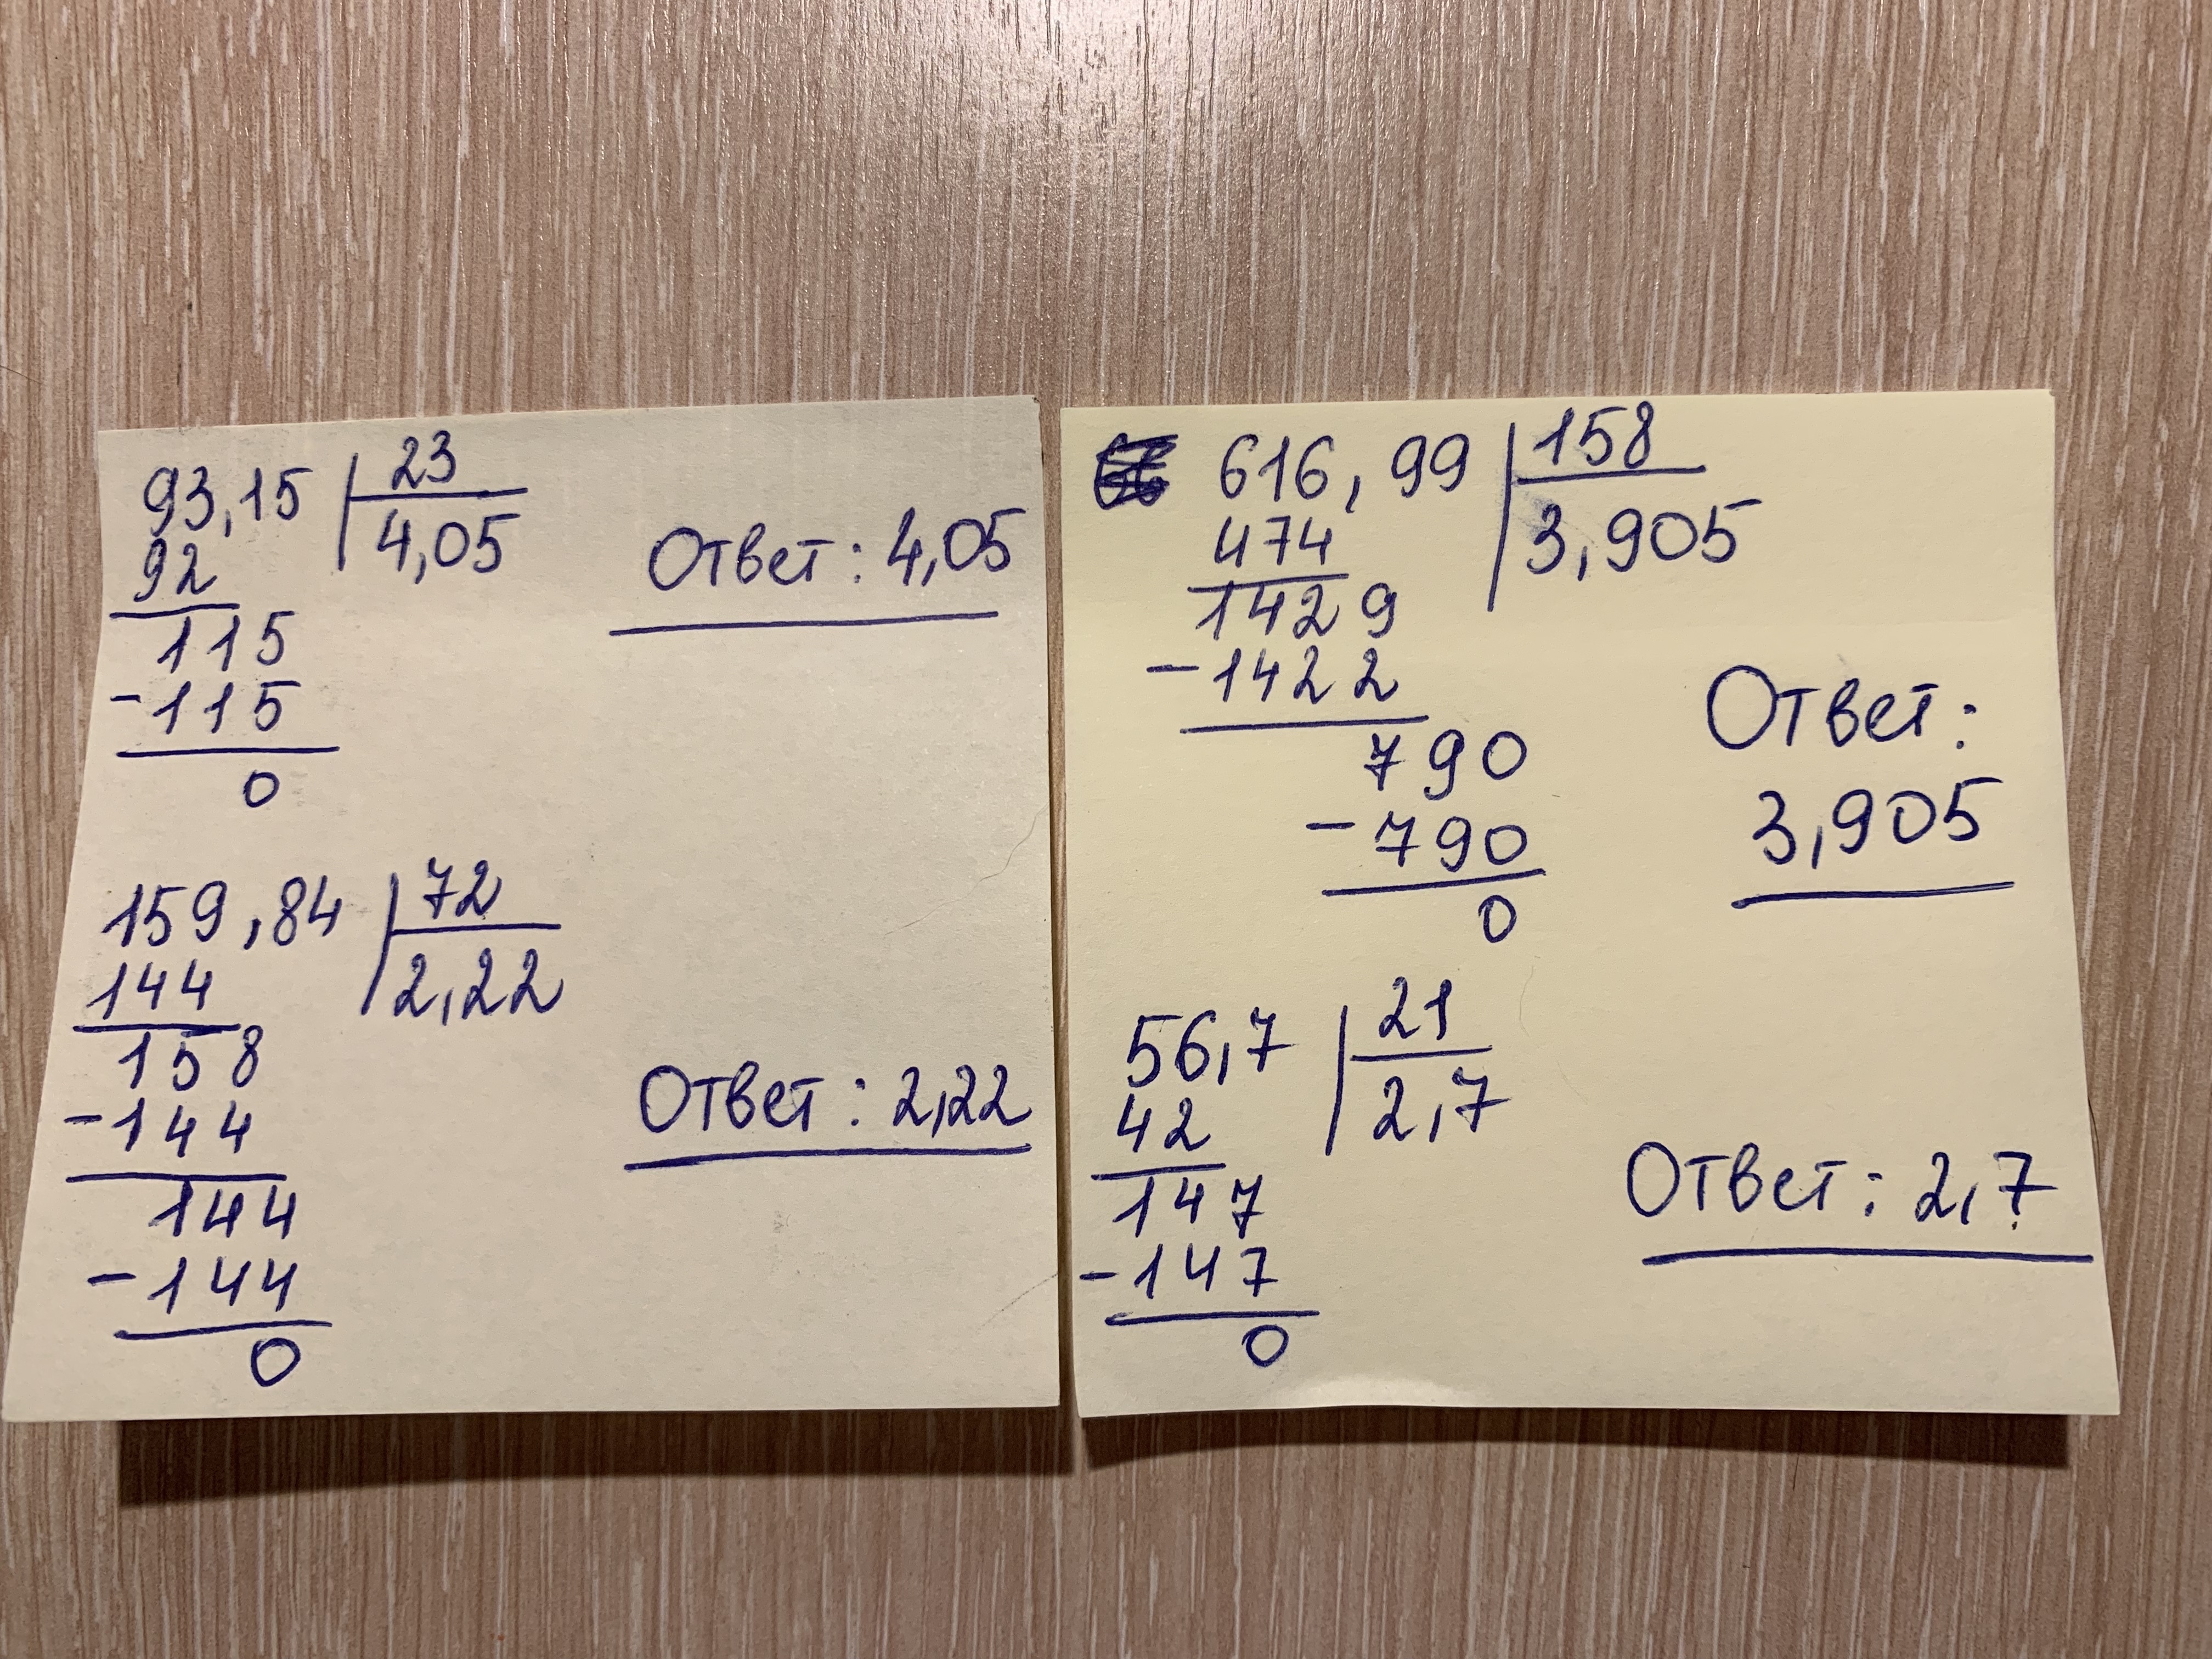 93,15 23
92 4,05
Ответ: 4,05
115
-115
0
159,84 72
144 2,22
158
-144
Ответ: 2,22
144
-144
0
616,99 158
474 3,905
1429
-1422
790
-790
0
Ответ:
3,905
56,7 21
42 2,7
147
-147
0
Ответ: 2,7